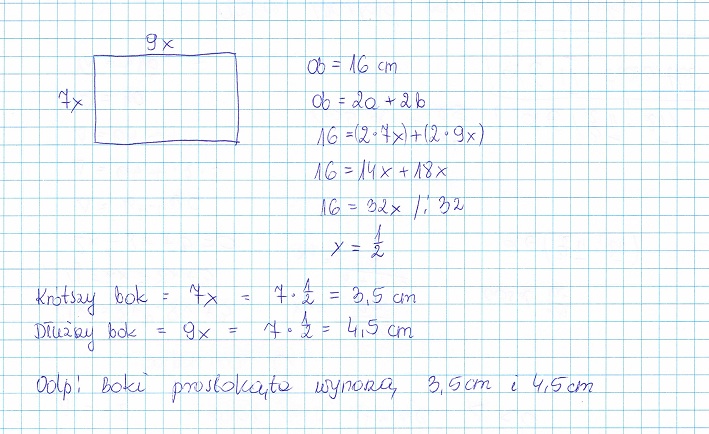 9x
7x
Ob = 16 cm
Ob = 2a + 2b
16 = (2·7x)+(2·9x)
16 = 14x + 18x
16 = 32x /: 32
x = 1/2
Krótszy bok = 7x = 7·1/2 = 3,5 cm
Dłuższy bok = 9x = 7·1/2 = 4,5 cm
Odp: boki prostokąta wynoszą 3,5cm i 4,5cm